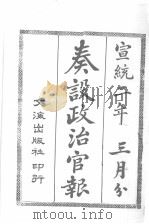 宣統年 三月分
奏設政治官報
文海出版社印行